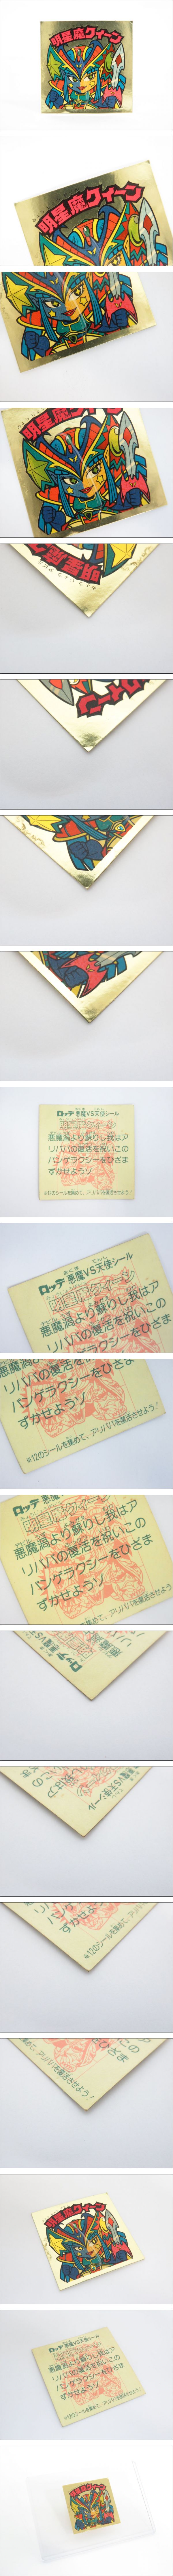 明星魔クィーン
明星魔クィーン
明星魔クィーン
明星魔クィーン
クィーン
ロッテ 悪魔VS天使シール
明星魔クィーン
悪魔渦より蘇りし我はア
リババの復活を祝いこの
パンゲラクシーをひざま
ずかせようゾ
※12のシールを集めて、アリババを復活させよう!
ロッテ 悪魔VS天使シール
明星魔クィーン
悪魔渦より蘇りし我はア
リババの復活を祝いこの
悪魔渦より蘇りし我はア
リババの復活を祝いこの
パンゲラクシーをひざま
ずかせようゾ
※12のシールを集めて、アリババを復活させよう!
ロッテ 悪魔
明星魔クィーン
悪魔渦より蘇りし我はア
リババの復活を祝いこの
パンゲラクシーをひざま
ずかせようゾ
明星魔クィーン
ロッテ 悪魔VS天使シール
明星魔クィーン
悪魔渦より蘇りし我はア
リババの復活を祝いこの
パンゲラクシーをひざま
ずかせようゾ
※12のシールを集めて、アリババを復活させよう!
明星魔クィーン